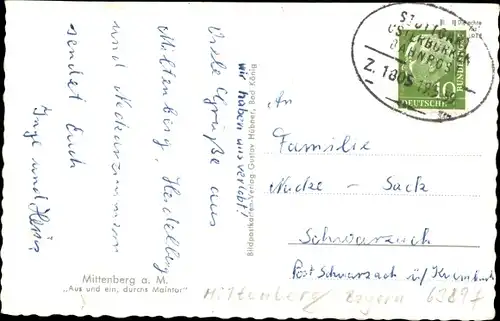 Viele Grüße aus
Miltenberg, Heidelberg
und Neckarzimmern
sendet Euch
Inge und Heinz
wir haben uns verlobt!
Bildpostkartenverlag Gustav Hübner, Bad König
Mittenberg a. M.
„Aus und ein, durchs Maintor“
An
Familie
Sack
Schwarzach
Post Schwarzach ü/
STUTTGART
OSTERBURKEN
BAHNPOST
Z. 1805
10
DEUTSCHE
BUNDESPOST
Miltenberg Bayern